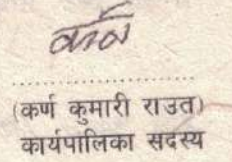 (कर्ण कुमारी राउत)
कार्यपालिका सदस्य